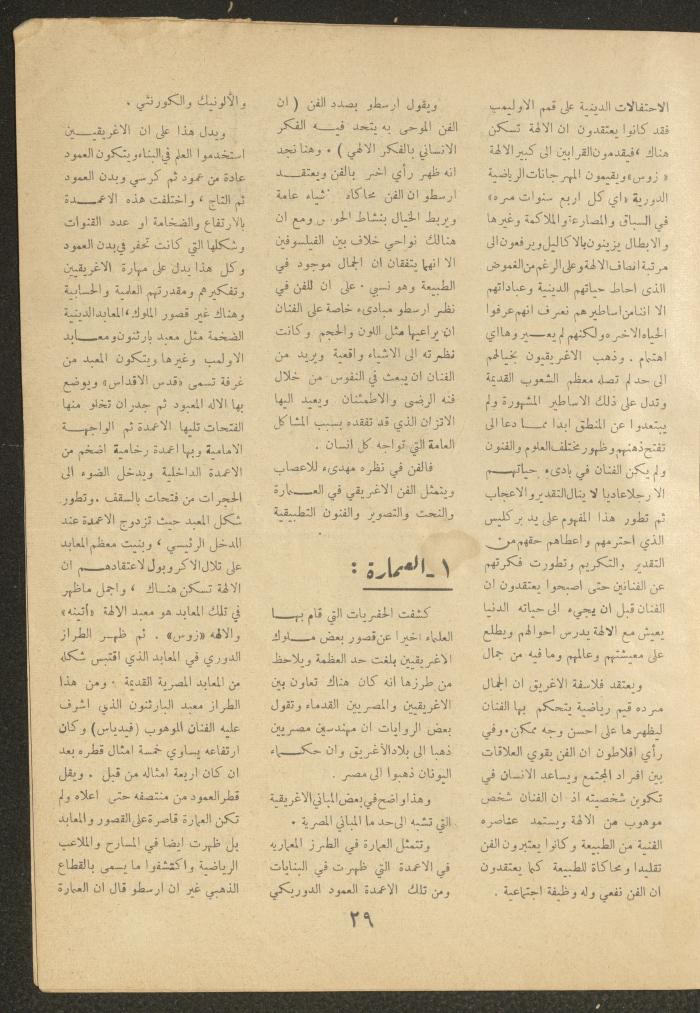 الاحتفالات الدينية على قمم الاوليمب
فقد كانوا يعتقدون ان الالهة تسكن
هناك ، فيقدمون القرابين الى كبير الالهة
« زوس » ويقيمون المهرجانات الرياضية
الدورية « اي كل اربع سنوات مره »
في السباق والمصارعة والملاكمة وغيرها
والابطال يزينون بالاكاليل ويرفعون الى
مرتبة انصاف الالهة وعلى الرغم من الغموض
الذى احاط حياتهم الدينية وعباداتهم
الا اننا من اساطيرهم نعرف انهم عرفوا
الحياه الاخره ولكنهم لم يعيروها اي
اهتمام . وذهب الاغريقيون بخيالهم
الى حد لم تصله معظم الشعوب القديمة
وتدل على ذلك الاساطير المشهورة ولم
يبتعدوا عن المنطق ابدا مما دعا الى
تفتح ذهنهم وظهور مختلف العلوم والفنون
ولم يكن الفنان في بادىء حياتهم
الا رجلا عاديا لا ينال التقدير والاعجاب
ثم تطور هذا المفهوم على يد بركليس
الذي احترمهم واعطاهم حقهم من
التقدير والتكريم وتطورت فكرتهم
عن الفنانين حتى اصبحوا يعتقدون ان
الفنان قبل ان يجيء الى حياته الدنيا
يعيش مع الالهة يدرس احوالهم ويطلع
على معيشتهم وعالمهم وما فيه من جمال
ويعتقد فلاسفة الاغريق ان الجمال
مرده قيم رياضية يتحكم بها الفنان
ليظهرها على احسن وجه ممكن . وفي
رأي افلاطون ان الفن يقوي العلاقات
بين افراد المجتمع ويساعد الانسان في
تكوين شخصيته اذ ان الفنان شخص
موهوب من الالهة ويستمد عناصره
الفنية من الطبيعة وكانوا يعتبرون الفن
تقليدا ومحاكاة للطبيعة كما يعتقدون
ان الفن نفعي وله وظيفة اجتماعية .
ويقول ارسطو بصدد الفن ( ان
الفن الموحى به يتحد فيه الفكر
الانساني بالفكر الالهي ) . وهنا نجد
انه ظهر رأي اخر بالفن ويعتقد
ارسطو ان الفن محاكاة شياء عامة
ويربط الخيال بنشاط الحواس ومع ان
هنالك نواحي خلاف بين الفيلسوفين
الا انهما يتفقان ان الجمال موجود في
الطبيعة وهو نسبي . على ان للفن في
نظر ارسطو مبادىء خاصة على الفنان
ان يراعيها مثل اللون والحجم وكانت
نظرته الى الاشياء واقعية ويريد من
الفنان ان يبعث في النفوس من خلال
فنه الرضى والاطمئنان ويعيد اليها
الاتزان الذي قد تفقده بسبب المشاكل
العامة التي تواجه كل انسان .
فالفن في نظره مهدىء للاعصاب
ويتمثل الفن الاغريقي في العمارة
والنحت والتصوير والفنون التطبيقية
١ ـ العمارة :
كشفت الحفريات التي قام بها
العلماء اخيرا عن قصور بعض ملوك
الاغريقيين بلغت حد العظمة ويلاحظ
من طرزها انه كان هناك تعاون بين
الاغريقيين والمصريين القدماء وتقول
بعض الروايات ان مهندسين مصريين
ذهبا الى بلاد الاغريق وان حكماء
اليونان ذهبوا الى مصر .
وهذا واضح في بعض المباني الاغريقية
التي تشبه الى حد ما المباني المصرية .
وتتمثل العمارة في الطرز المعماريه
في الاعمدة التي ظهرت في البنايات
ومن تلك الاعمدة العمود الدوريكي
والألونيك والكورنثي .
ويدل هذا على ان الاغريقيين
استخدموا العلم في البناء ويتكون العمود
عادة من عمود ثم كرسي وبدن العمود
ثم التاج ، واختلفت هذه الاعمدة
بالارتفاع والضخامة او عدد القنوات
وشكلها التي كانت تحفر في بدن العمود
وكل هذا يدل على مهارة الاغريقيين
وتفكيرهم ومقدرتهم العلمية والحسابية
وهناك غير قصور الملوك ، المعابد الدينية
الضخمة مثل معبد بارثنون ومعابد
الاولمب وغيرها ويتكون المعبد من
غرفة تسمى « قدس الاقداس » ويوضع
بها الاله المعبود ثم جدران تخلو منها
الفتحات تليها الاعمدة ثم الواجهة
الامامية وبها اعمدة رخامية اضخم من
الاعمدة الداخلية ويدخل الضوء الى
الحجرات من فتحات بالسقف . وتطور
شكل المعبد حيث تزدوج الاعمدة عند
المدخل الرئيسي ، وبنيت معظم المعابد
على تلال الاكروبول لاعتقادهم ان
الالهة تسكن هناك ، واجمل ماظهر
في تلك المعابد هو معبد الالهة « أتينه »
والاله « زوس » . ثم ظهر الطراز
الدوري في المعابد الذي اقتبس شكله
من المعابد المصرية القديمة . ومن هذا
الطراز معبد البارثنون الذي اشرف
عليه الفنان الموهوب ( فيدياس ) وكان
ارتفاعه يساوي خمسة امثال قطره بعد
ان كان اربعة امثاله من قبل . ويقل
قطر العمود من منتصفه حتى اعلاه ولم
تكن العمارة قاصرة على القصور والمعابد
بل ظهرت ايضا في المسارح والملاعب
الرياضية واكتشفوا ما يسمى بالقطاع
الذهبي غير ان ارسطو قال ان العمارة
٢٩